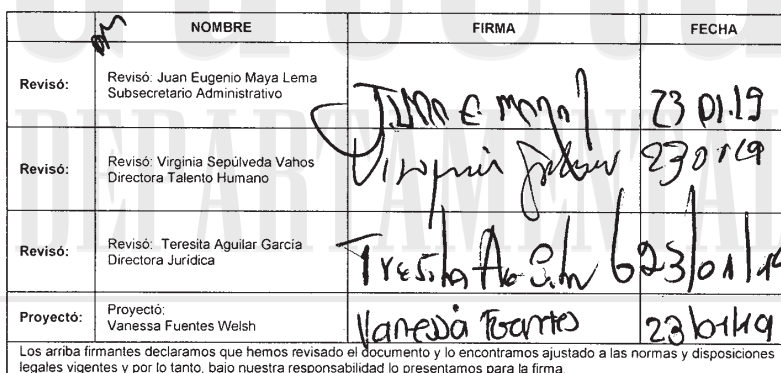 NOMBRE FIRMA FECHA
Revisó: Revisó: Juan Eugenio Maya Lema
Subsecretario Administrativo
Juan E Maya L 23 01.19
Revisó: Revisó: Virginia Sepúlveda Vahos
Directora Talento Humano
Virginia 230119
Revisó: Revisó: Teresita Aguilar García
Directora Jurídica
Teresita 23/01/19
Proyectó: Proyectó:
Vanessa Fuentes Welsh
Vanessa Fuentes 23/01/19
Los arriba firmantes declaramos que hemos revisado el documento y lo encontramos ajustado a las normas y disposiciones
legales vigentes y por lo tanto, bajo nuestra responsabilidad lo presentamos para la firma.
DEPARTAMENTAL